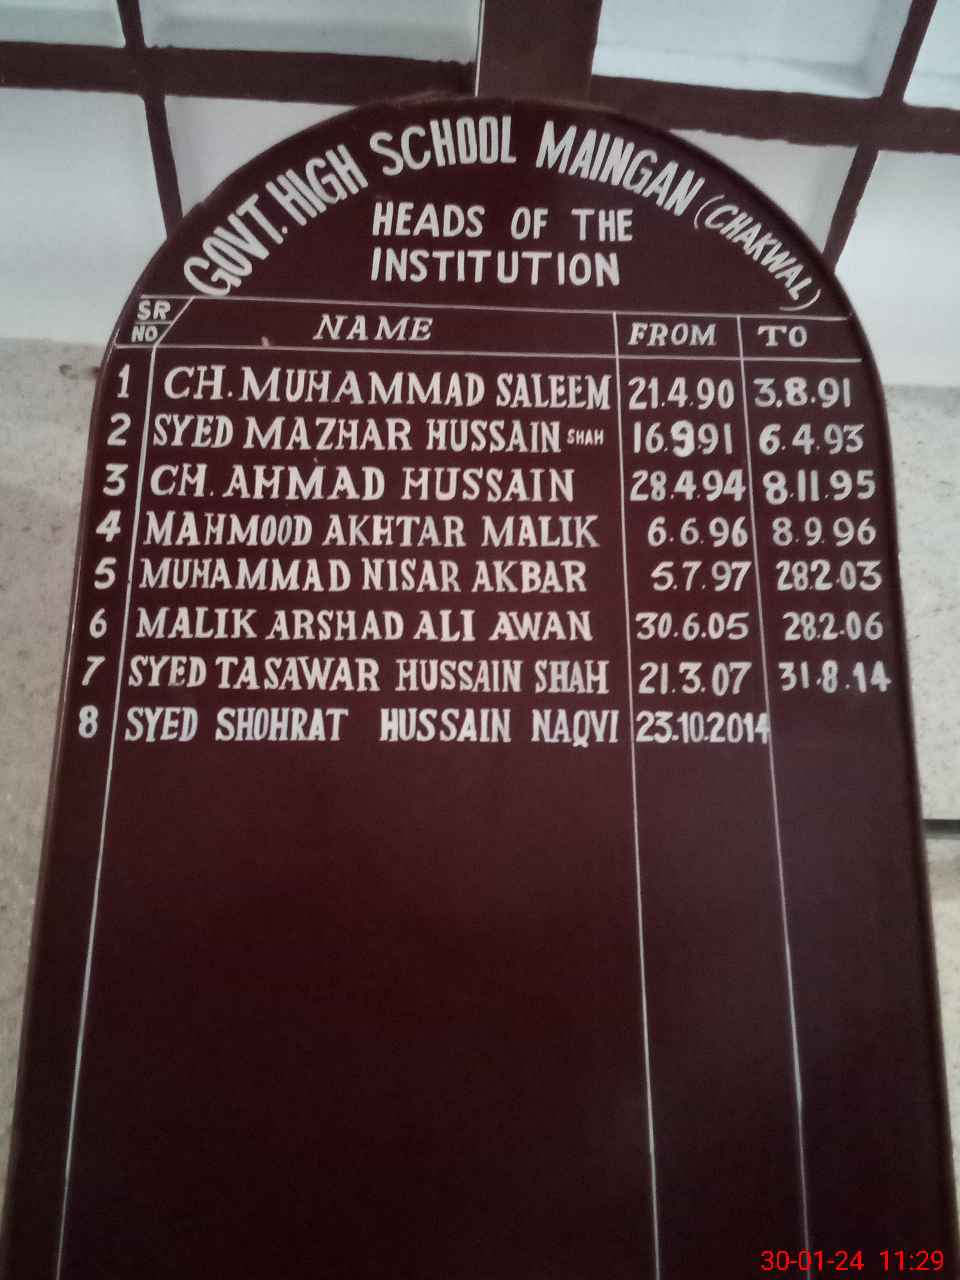 GOVT. HIGH SCHOOL MAINGAN (CHAKWAL)
HEADS OF THE
INSTITUTION
SR NO NAME FROM TO
1 CH. MUHAMMAD SALEEM 21.4.90 3.8.91
2 SYED MAZHAR HUSSAIN SHAH 16.9.91 6.4.93
3 CH. AHMAD HUSSAIN 28.4.94 8.11.95
4 MAHMOOD AKHTAR MALIK 6.6.96 8.9.96
5 MUHAMMAD NISAR AKBAR 5.7.97 28.2.03
6 MALIK ARSHAD ALI AWAN 30.6.05 28.2.06
7 SYED TASAWAR HUSSAIN SHAH 21.3.07 31.8.14
8 SYED SHOHRAT HUSSAIN NAQVI 23.10.2014
30-01-24 11:29